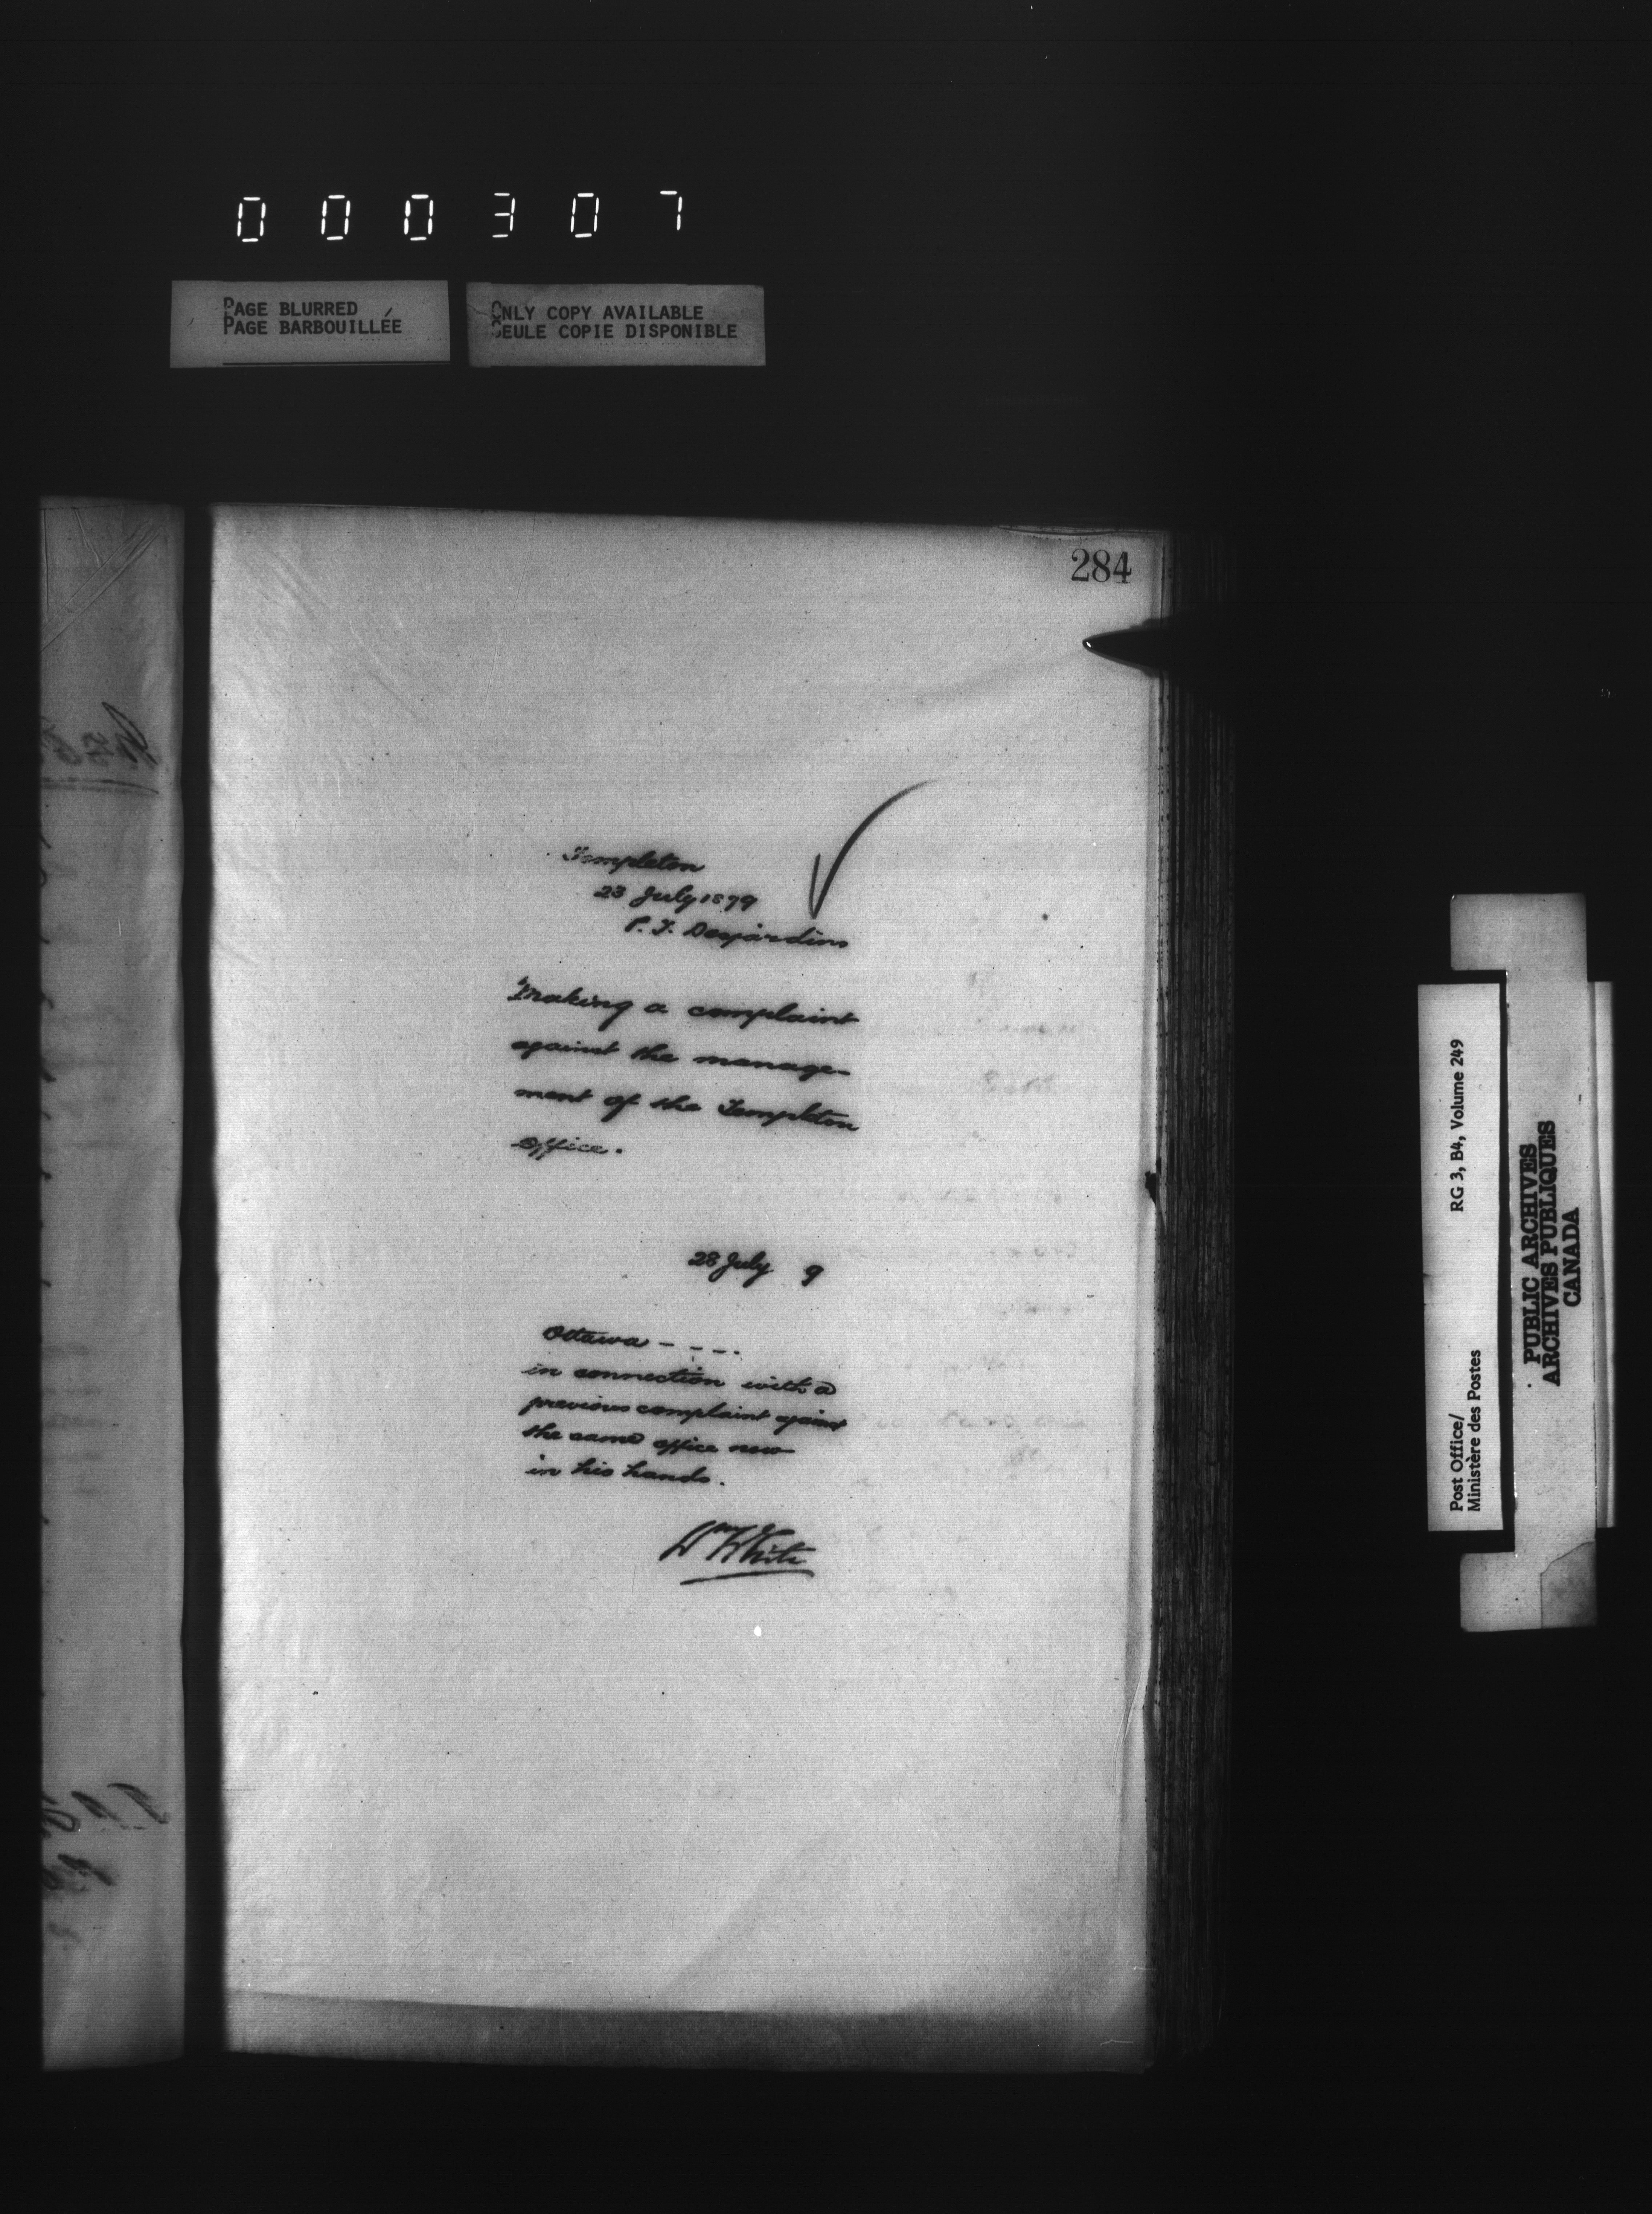 000307
PAGE BLURRED
PAGE BARBOUILLÉE
ONLY COPY AVAILABLE
SEULE COPIE DISPONIBLE
284
Templeton
23 July 1879
P. T. Desjardins
Making a complaint
against the manage-
ment of the Templeton
Office.
28 July 9
Ottawa - - - -
in connection with a
previous complaint against
the same office now
in his hands.
Wm White
Post Office/
Ministère des Postes
RG 3, B4, Volume 249
PUBLIC ARCHIVES
ARCHIVES PUBLIQUES
CANADA